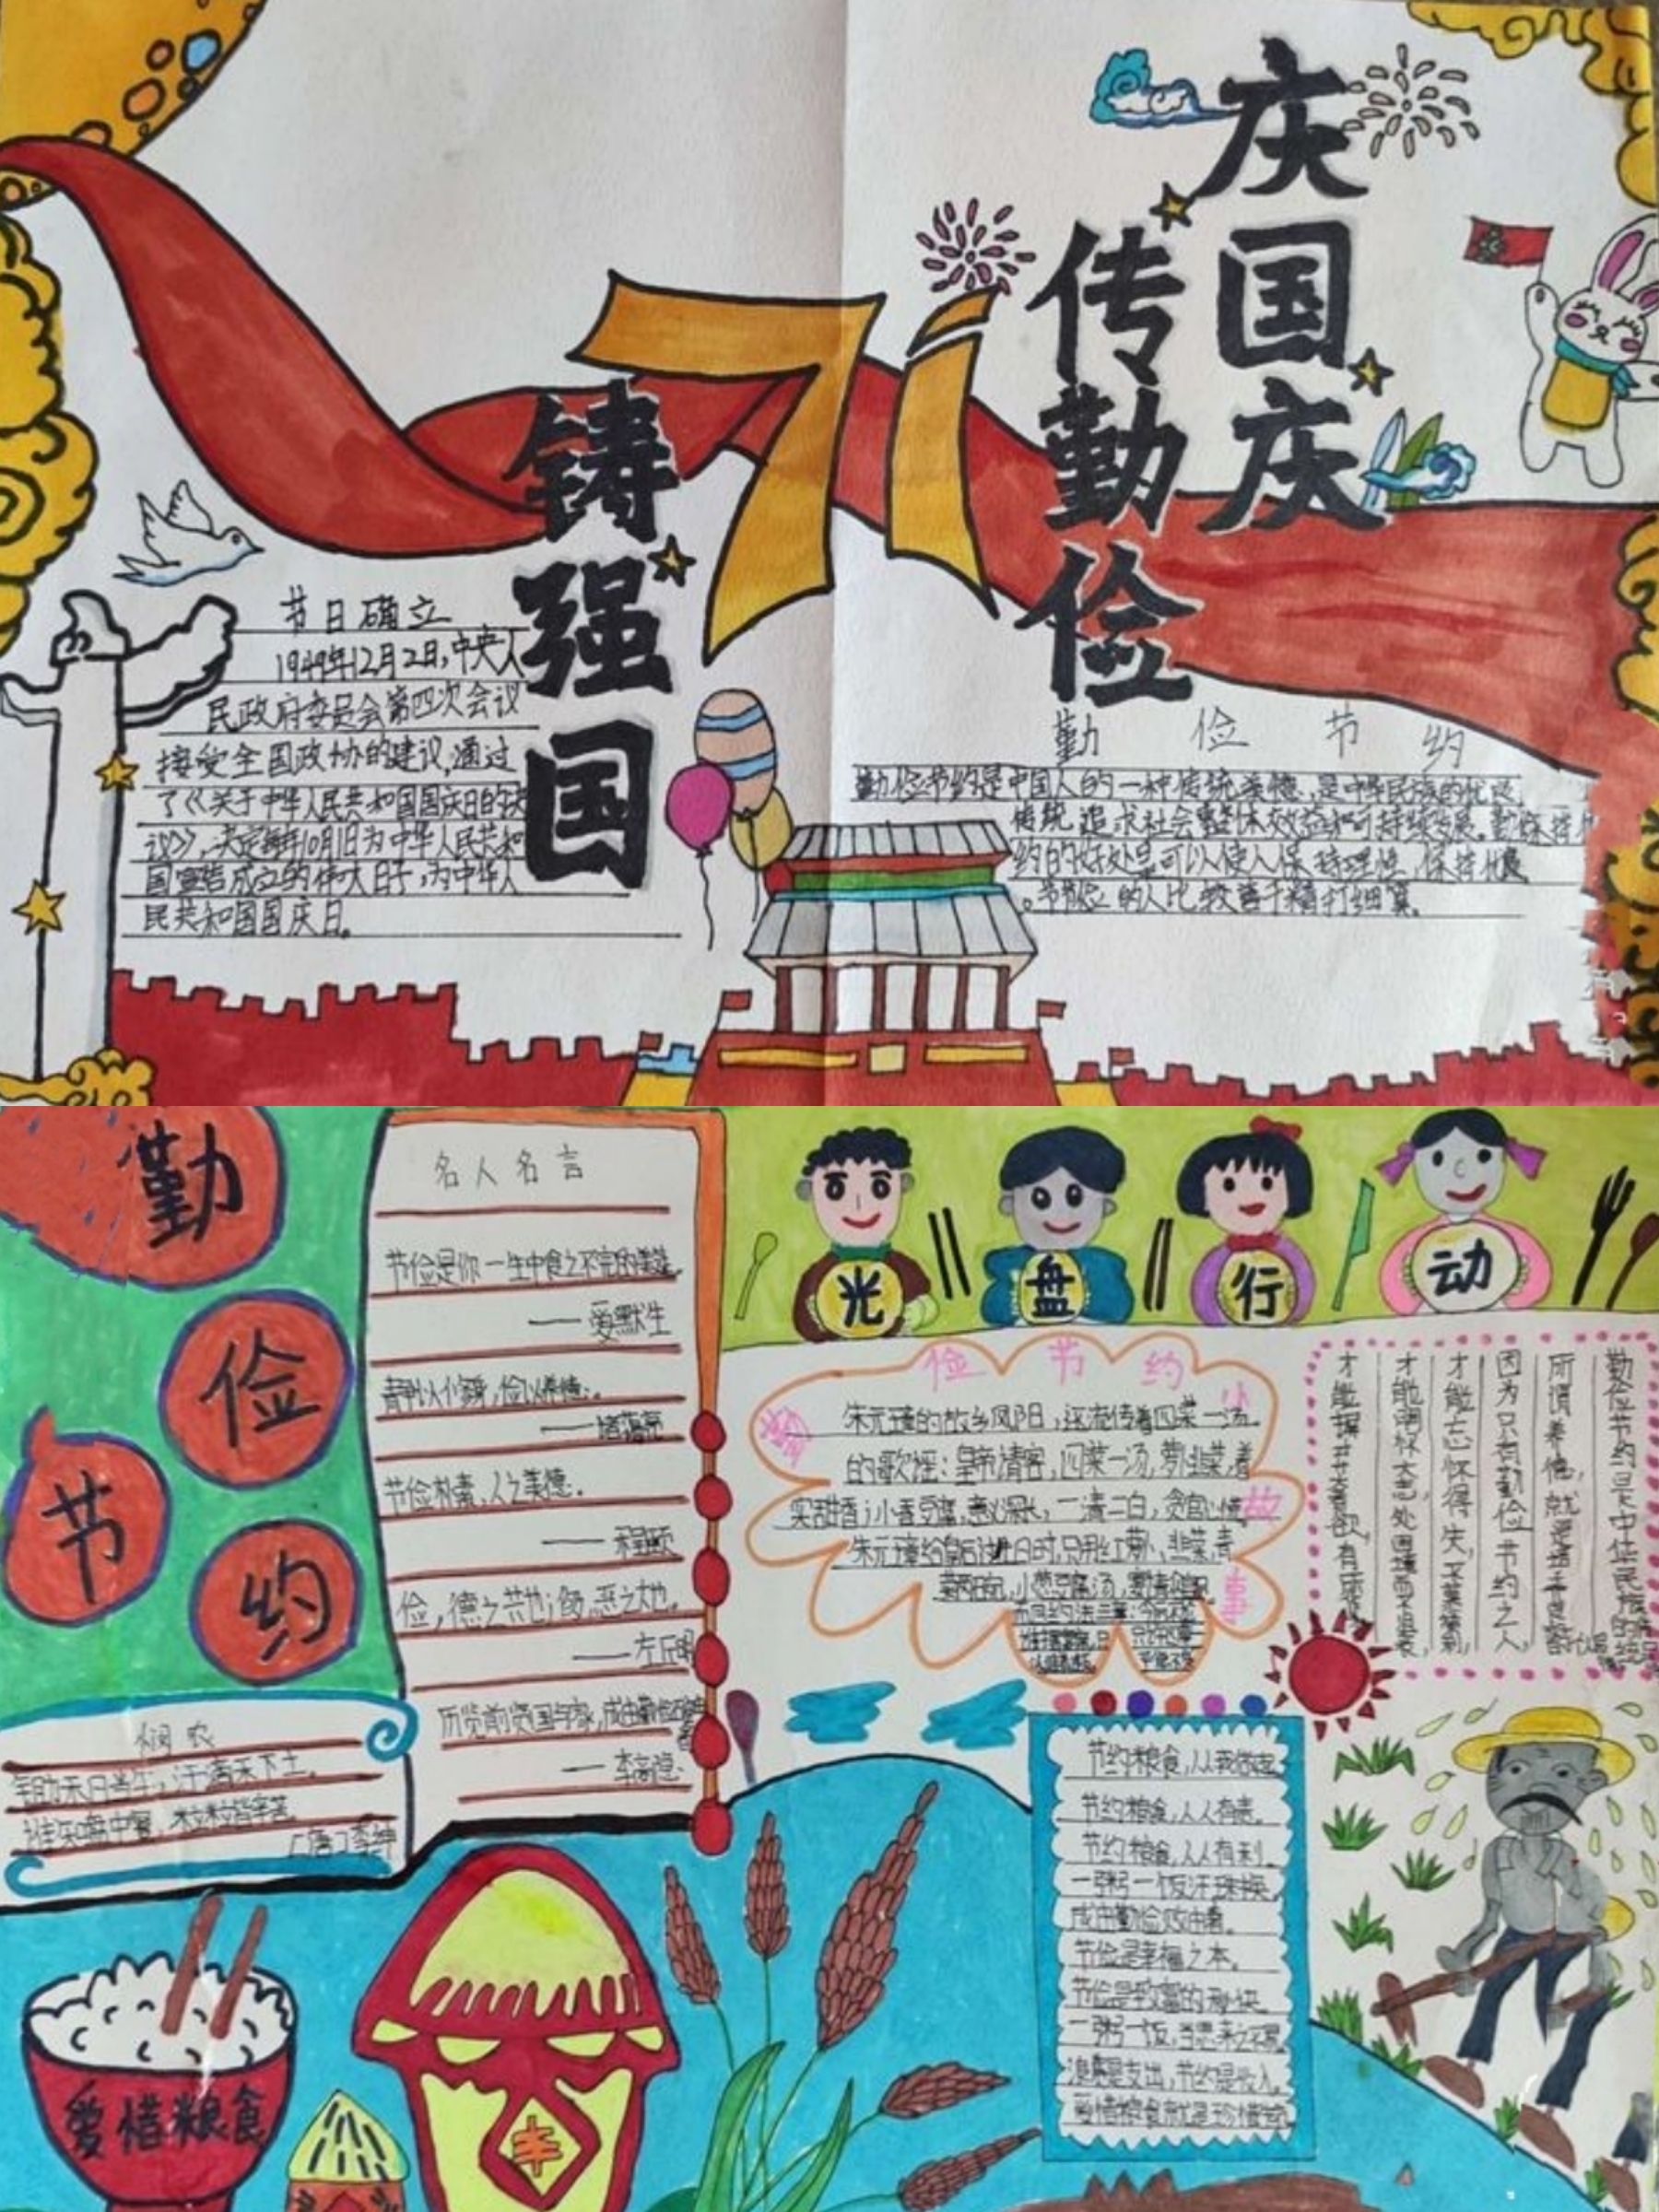 庆国庆
传勤俭
71
铸强国
节日确立
1949年12月2日,中央人
民政府委员会第四次会议
接受全国政协的建议,通过
了《关于中华人民共和国国庆日的决
议》,决定每年10月1日为中华人民共和
国宣告成立的伟大日子,为中华人
民共和国国庆日。
勤俭节约
勤俭节约是中国人的一种传统美德,是中华民族的优良
传统,追求社会整体效益和可持续发展。勤俭节
约的好处是可以使人保持理性,保持优良
。节俭的人比较善于精打细算。
勤
俭
节
约
名人名言
节俭是你一生中食之不完的美筵。
——爱默生
静以修身,俭以养德。
——诸葛亮
节俭朴素,人之美德。
——程颐
俭,德之共也;侈,恶之大也。
——左丘明
历览前贤国与家,成由勤俭破由奢
——李商隐
悯农
锄禾日当午,汗滴禾下土。
谁知盘中餐,粒粒皆辛苦。
[唐]李绅
爱惜粮食
丰
光盘行动
俭节约
小
故
事
朱元璋的故乡凤阳,还流传着四菜一汤
的歌谣:皇帝请客,四菜一汤,萝卜韭菜,着
实甜香;小葱豆腐,意义深长,一清二白,贪官心慌。
朱元璋给皇后过生日时,只用红萝卜、韭菜,青
菜两碗,小葱豆腐汤,宴请
勤俭节约是中华民族的
所谓养德,就是培养
因为只有勤俭节约之人,
才能忘怀得失,
才能明怀大志,处困境而不沮丧,
才能摒弃奢欲,有所
节约粮食,从我做起
节约粮食,人人有责。
节约粮食,人人有利。
一粥一饭汗珠换。
成由勤俭败由奢。
节俭是幸福之本。
节俭是致富的秘诀
一粥一饭,当思来之不易
浪费是支出,节约是收入。
爱惜粮食就是珍惜